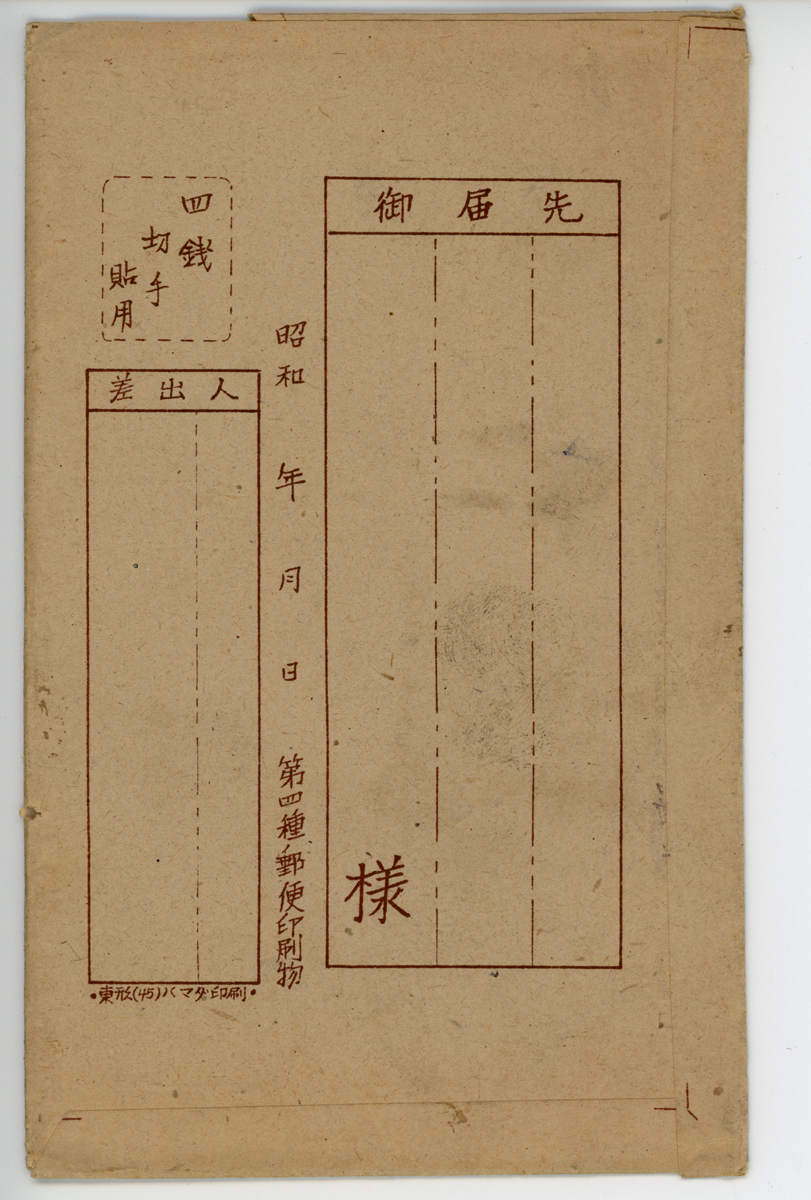 御届先
様
昭和　年　月　日　第四種郵便印刷物
四銭
切手
貼用
差出人
•東形(45)ハマダ印刷•